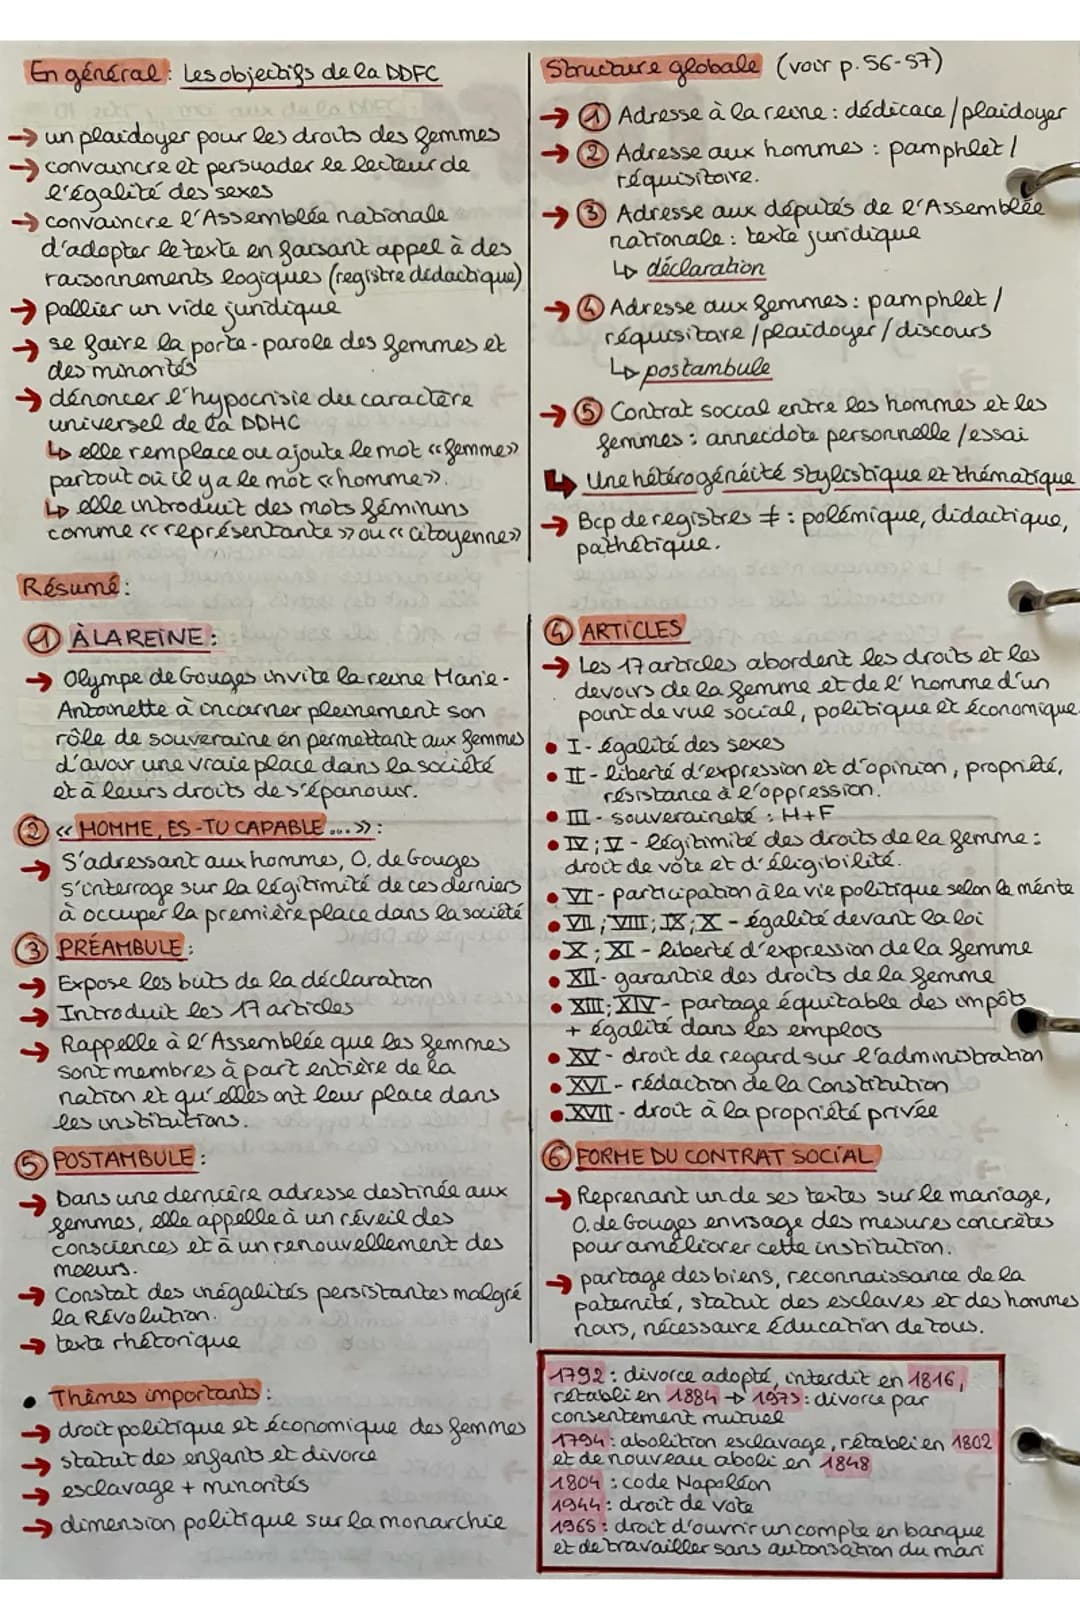 En général : Les objectifs de la DDFC
→ un plaidoyer pour les droits des femmes
→ convaincre et persuader le lecteur de
l'égalité des sexes
→ convaincre l'Assemblée nationale
d'adopter le texte en faisant appel à des
raisonnements logiques (registre didactique)
→ pallier un vide juridique
→ se faire la porte-parole des femmes et
des minorités
→ dénoncer l'hypocrisie du caractère
universel de la DDHC
↳ elle remplace ou ajoute le mot «femme»
partout où il y a le mot «homme».
↳ elle introduit des mots féminins
comme «représentante» ou «citoyenne»
Structure globale (voir p. 56-57)
→ ① Adresse à la reine : dédicace / plaidoyer
→ ② Adresse aux hommes : pamphlet /
réquisitoire.
→ ③ Adresse aux députés de l'Assemblée
nationale : texte juridique
↳ déclaration
→ ④ Adresse aux femmes : pamphlet /
réquisitoire / plaidoyer / discours
↳ postambule
→ ⑤ Contrat social entre les hommes et les
femmes : annecdote personnelle / essai
↳ Une hétérogénéité stylistique et thématique
→ Bcp de registres ≠ : polémique, didactique,
pathétique.
Résumé :
① À LA REINE :
→ Olympe de Gouges invite la reine Marie-
Antoinette à incarner pleinement son
rôle de souveraine en permettant aux femmes
d'avoir une vraie place dans la société
et à leurs droits de s'épanouir.
② « HOMME, ES-TU CAPABLE ... » :
→ S'adressant aux hommes, O. de Gouges
s'interroge sur la légitimité de ces derniers
à occuper la première place dans la société
③ PRÉAMBULE :
→ Expose les buts de la déclaration
→ Introduit les 17 articles
→ Rappelle à l'Assemblée que les femmes
sont membres à part entière de la
nation et qu'elles ont leur place dans
les institutions.
④ ARTICLES
→ Les 17 articles abordent les droits et les
devoirs de la femme et de l'homme d'un
point de vue social, politique et économique.
• I - égalité des sexes
• II - liberté d'expression et d'opinion, propriété,
résistance à l'oppression.
• III - souveraineté : H+F
• IV ; V - légitimité des droits de la femme :
droit de vote et d'éligibilité.
• VI - participation à la vie politique selon le mérite
• VII ; VIII ; IX ; X - égalité devant la loi
• X ; XI - liberté d'expression de la femme
• XII - garantie des droits de la femme
• XIII ; XIV - partage équitable des impôts
+ égalité dans les emplois
• XV - droit de regard sur l'administration
• XVI - rédaction de la Constitution
• XVII - droit à la propriété privée
⑤ POSTAMBULE :
→ Dans une dernière adresse destinée aux
femmes, elle appelle à un réveil des
consciences et à un renouvellement des
moeurs.
→ Constat des inégalités persistantes malgré
la Révolution.
→ texte rhétorique
⑥ FORME DU CONTRAT SOCIAL
→ Reprenant un de ses textes sur le mariage,
O. de Gouges envisage des mesures concrètes
pour améliorer cette institution.
→ partage des biens, reconnaissance de la
paternité, statut des esclaves et des hommes
noirs, nécessaire éducation de tous.
• Thèmes importants :
→ droit politique et économique des femmes
→ statut des enfants et divorce
→ esclavage + minorités
→ dimension politique sur la monarchie
1792 : divorce adopté, interdit en 1816,
rétabli en 1884 → 1975 : divorce par
consentement mutuel
1794 : abolition esclavage, rétabli en 1802
et de nouveau aboli en 1848
1804 : code Napoléon
1944 : droit de vote
1965 : droit d'ouvrir un compte en banque
et de travailler sans autorisation du mari